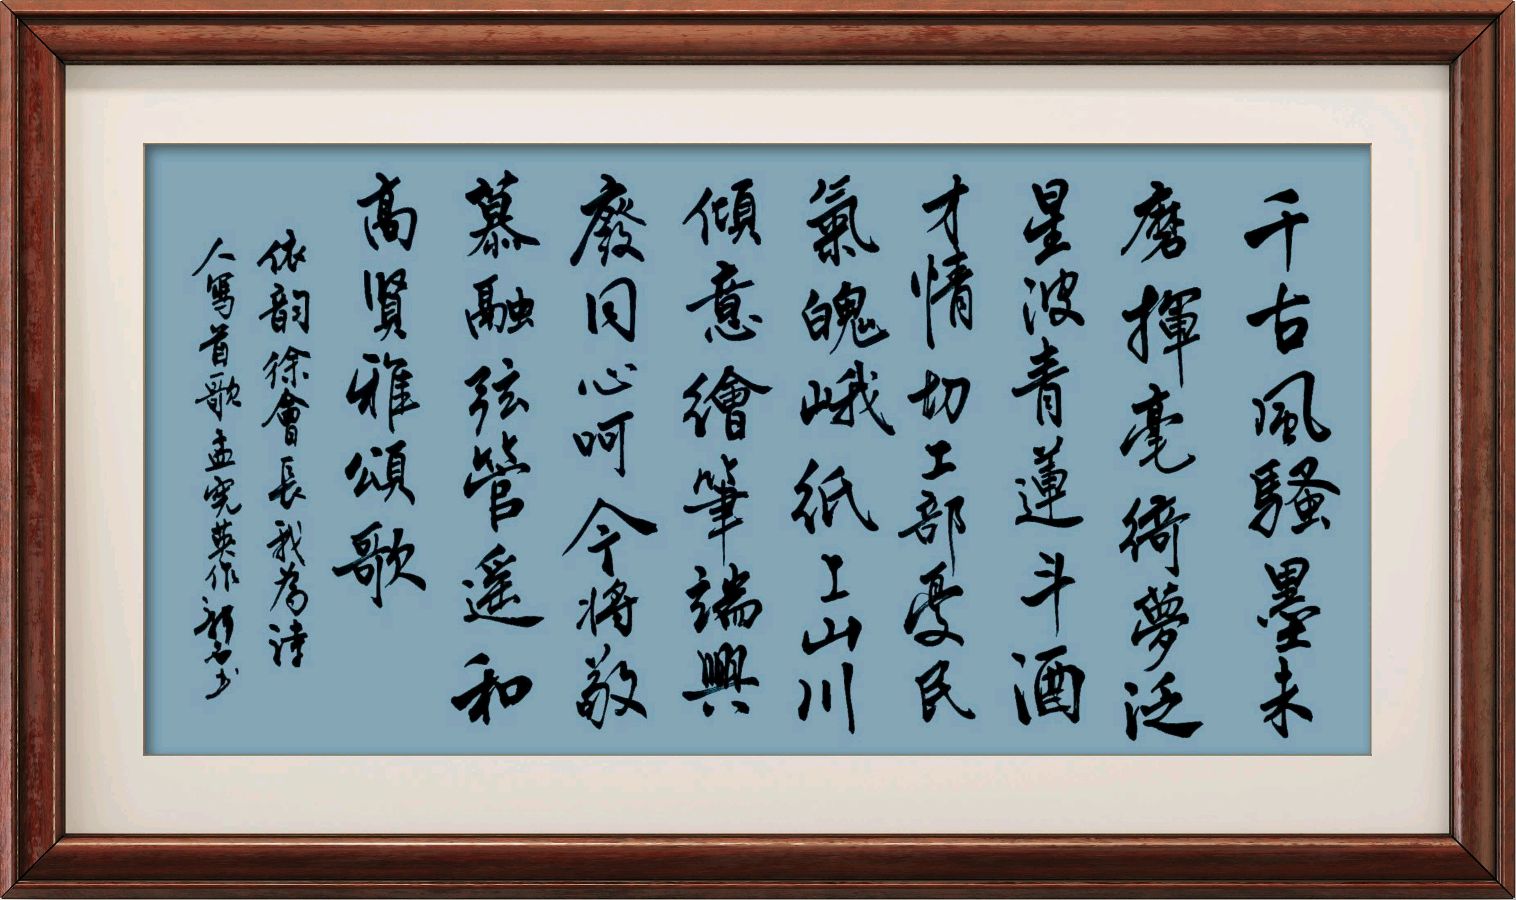 千古風騷墨未
磨揮毫綺夢泛
星波青蓮斗酒
才情切工部憂民
氣魄峨紙上山川
傾意繪筆端興
廢同心呵今将敬
慕融弦管遥和
高賢雅頌歌
依韵徐會長我為詩
人寫首歌孟宪英作